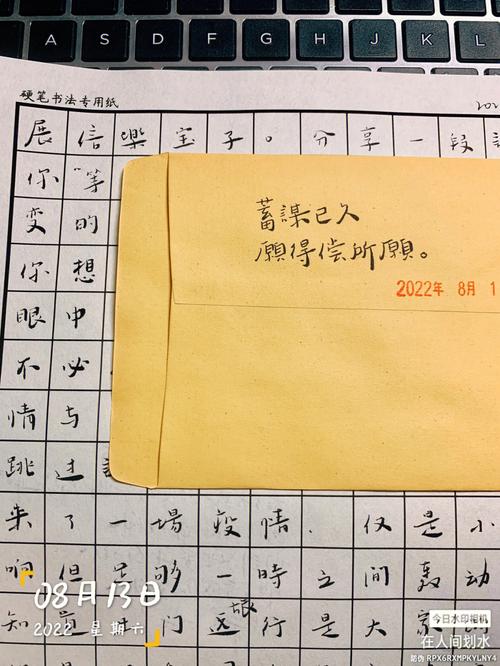 A S D F G H J K L
硬笔书法专用纸
202
展信樂宝子。分享一段
你"等
蓄謀已久
变的
願得偿所願。
你想
2022年 8月 1
眼中
不必
情与
跳过
来了一場疫情.仅是小
响但是够一時之间轰动
08月13日
知道出门远行是大家
旅
2022 星期六
今日水印相机
在人间划水
防伪 RPX6RXMPKYLNY4